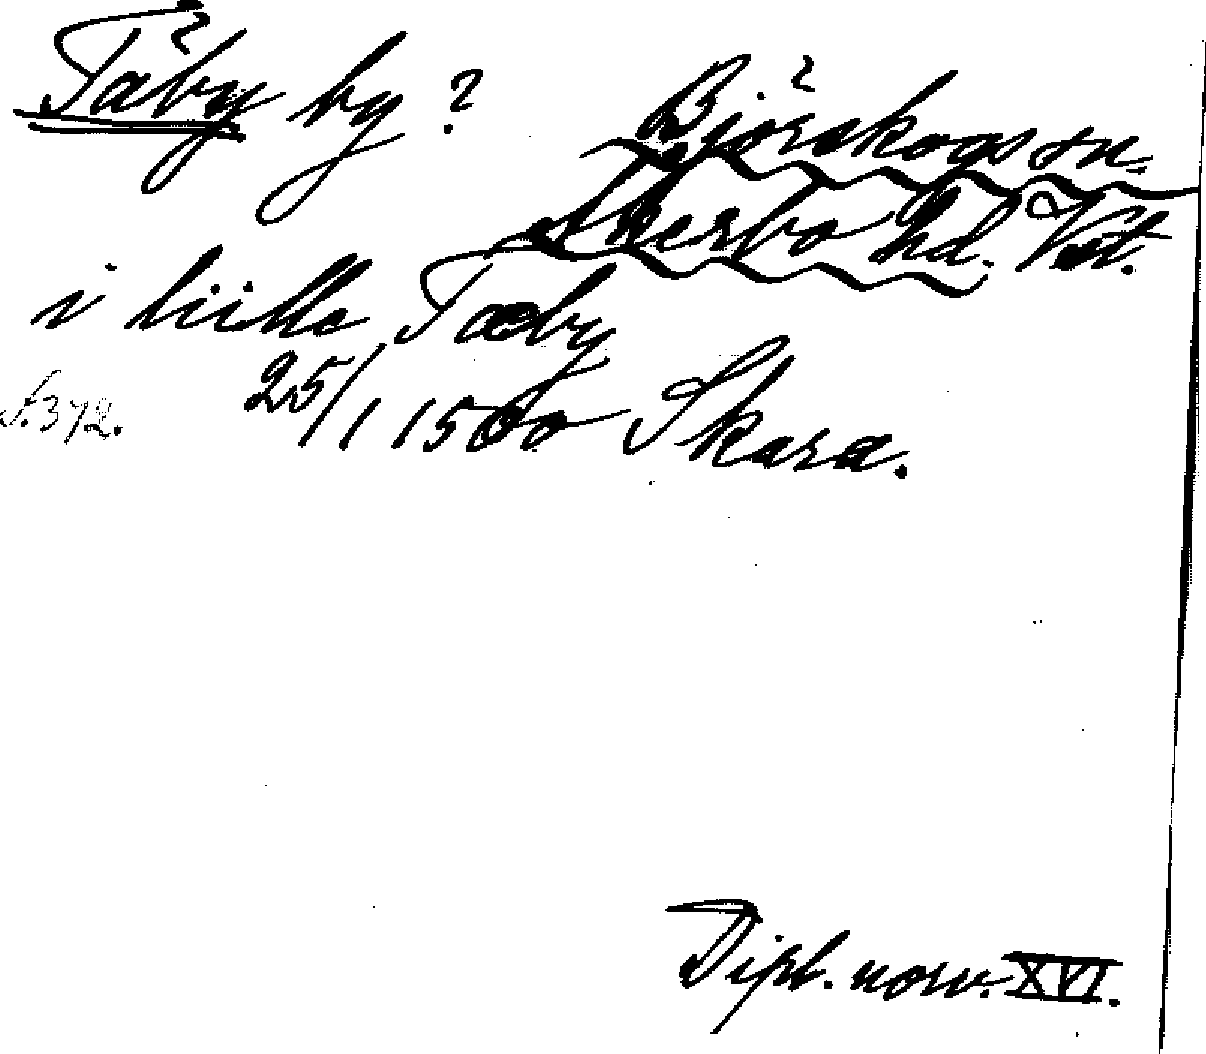 Täby by?
Björskogs sn.
Åkerbo hd. Vstm.
i liille Tæby
S. 372.
25/1 1500 Skara.
Dipl. norv. XVI.